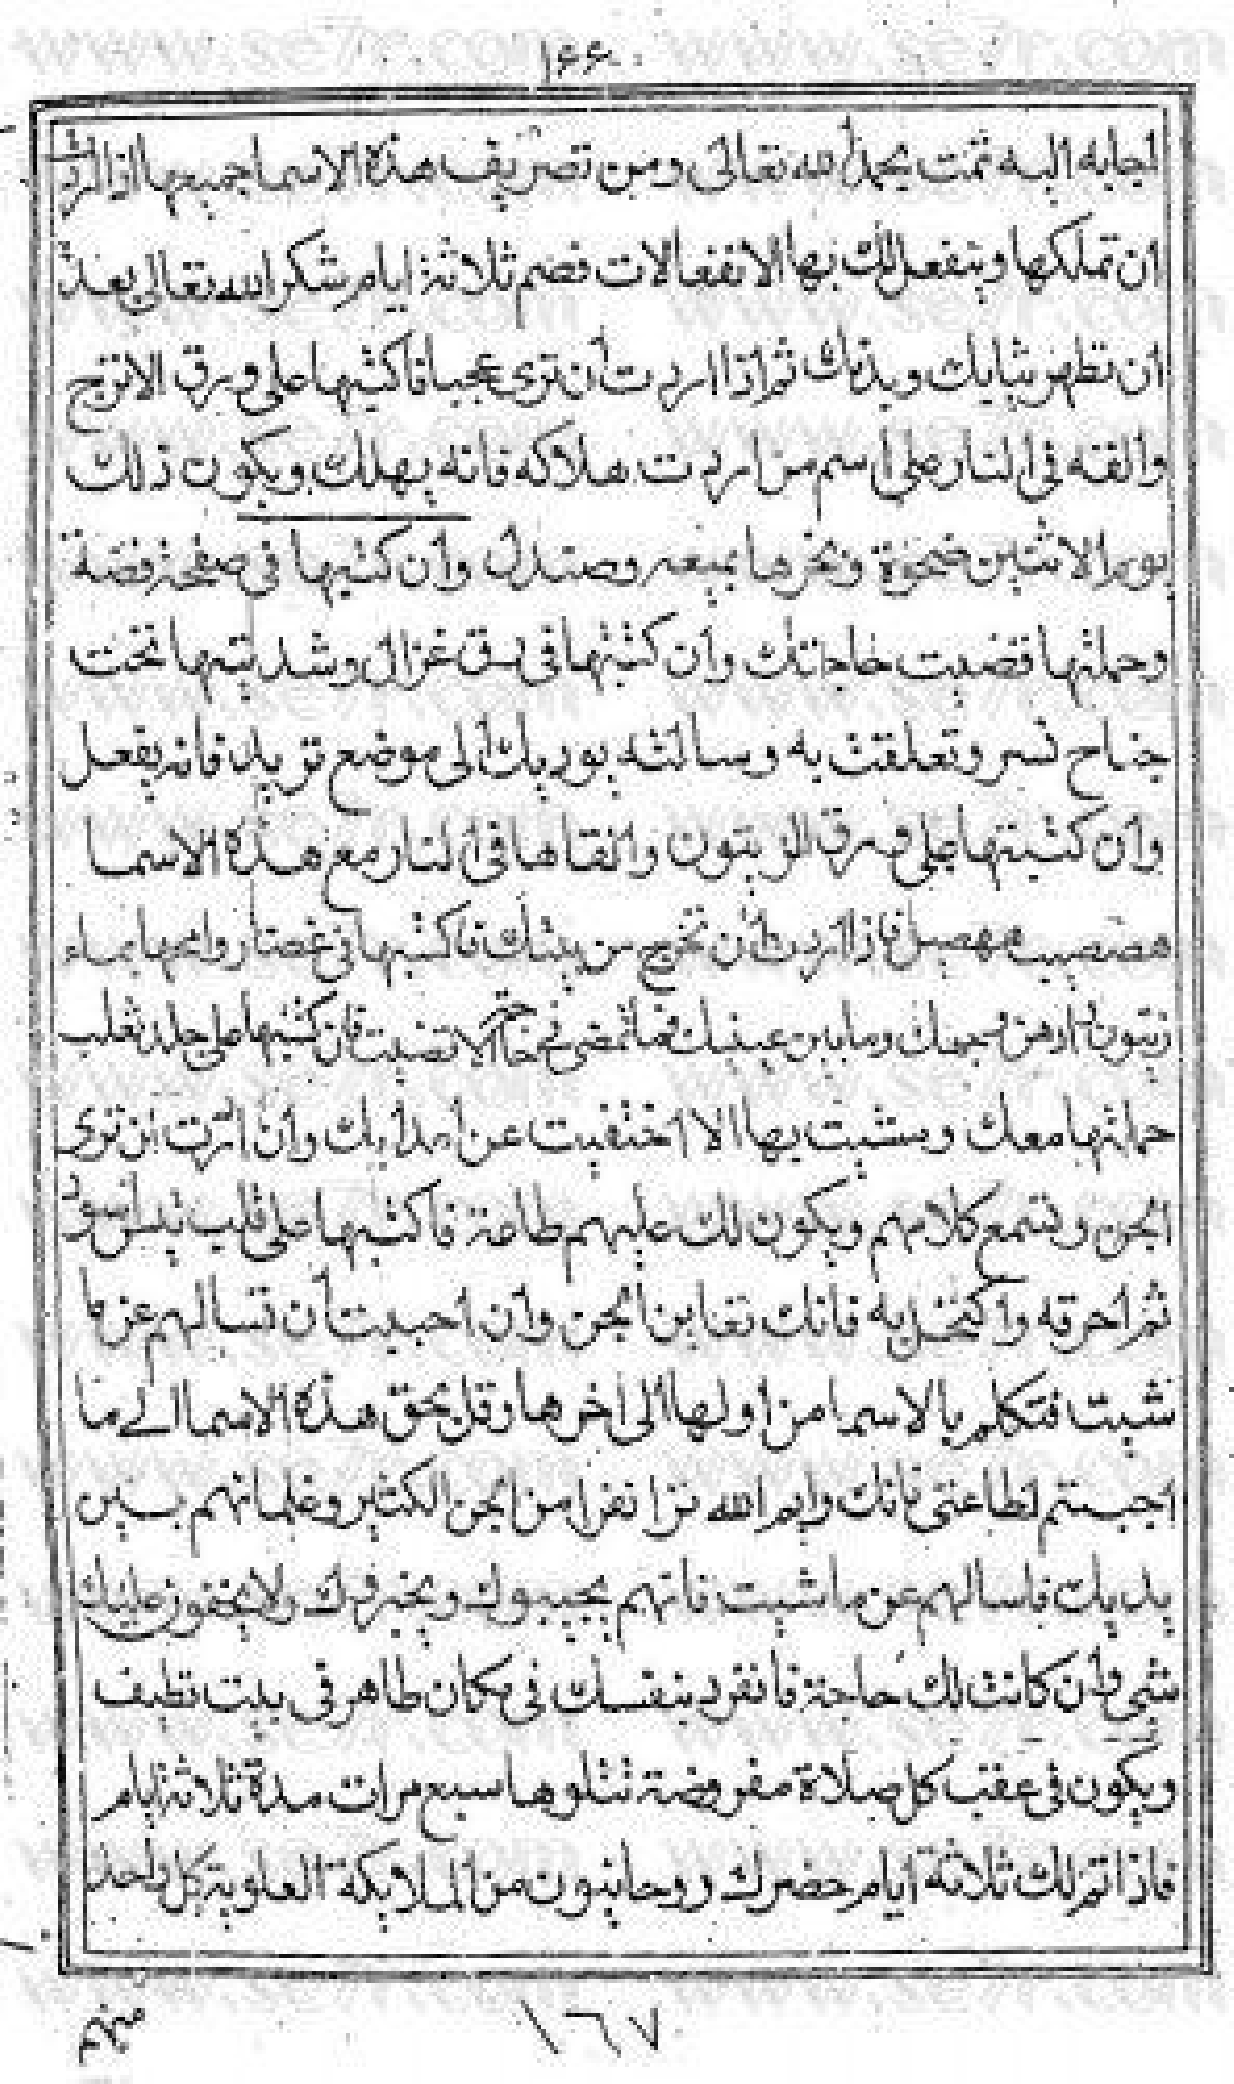 ١٦٦
لجابه اليه تمت بحمد الله تعالى ومن تصريف هذه الاسما جميعها اذا اردت
ان تملكها وينفعل لك بها الانفعالات فصم ثلاثة ايام شكر الله تعالى بعد
ان تطهر ثيابك وبدنك ثم اذا اردت أن ترى عجبا فاكتبها على ورق الاترج
والقه في النار على اسم من اردت هلاكه فانه يهلك ويكون ذلك
يوم الاثنين ضحوة وبخرها بميعه وصندل وأن كتبها في صفحة فضة
وحملتها قضيت حاجاتك وأن كتبتها في رق غزال وشديتها تحت
جناح نسر وتعلقت به وسالته يوديك الى موضع تريد فانه يفعل
وأن كتبتها على ورق الزيتون والقاها في النار مع هذه الاسما
فاذا اردت أن تخرج من بيتك فاكتبها في غضار وامحها بماء
زيتون وادهن وجهك وما بين عينيك فما تمضي في حاجة الا قضيت فان كتبها على جلد ثعلب
حملتها معك ومشيت بها الا اختفيت عن اعدايك وأن اردت ان ترى
الجن وتسمع كلامهم ويكون لك عليهم طاعة فاكتبها على قلب اسود
ثم احرقه واكتحل به فانك تعاين الجن وأن احبيت أن تسالهم عن ما
شيت فتكلم بالاسما من اولها الى اخرها وقل بحق هذه الاسما الے ما
اجبتم لطاعتي فانك وايم الله ترا نفرا من الجن الكثير وغلمانهم بين
يديك فاسالهم عن ما شيت فانهم يجيبوك ويخبروك ولا يخفون عليك
شي وأن كانت لك حاجة فانفرد بنفسك في مكان طاهر في بيت نظيف
ويكون في عقب كل صلاة مفروضة تتلوها سبع مرات مدة ثلاثة ايام
فاذا تم لك ثلاثة ايام حضرك روحانيون من الملايكة العلوية كل واحد
منهم
١٦٧
www.se7r.com